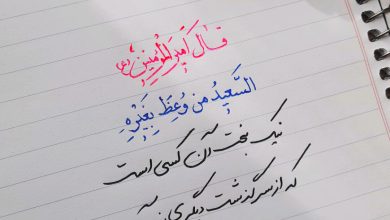 قال أمیرالمؤمنین (ع)
السَّعیدُ من وُعِظَ بِغَیْرِهِ
نیک بخت آن کسی است
که از سرگذشت دیگری